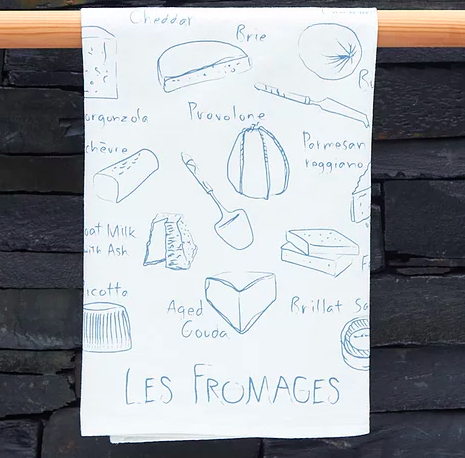 Cheddar
Brie
orgonzola
Provolone
chèvre
Parmesan
reggiano
oat Milk
with Ash
icotta
Aged
Gouda
Brillat Sa
LES FROMAGES